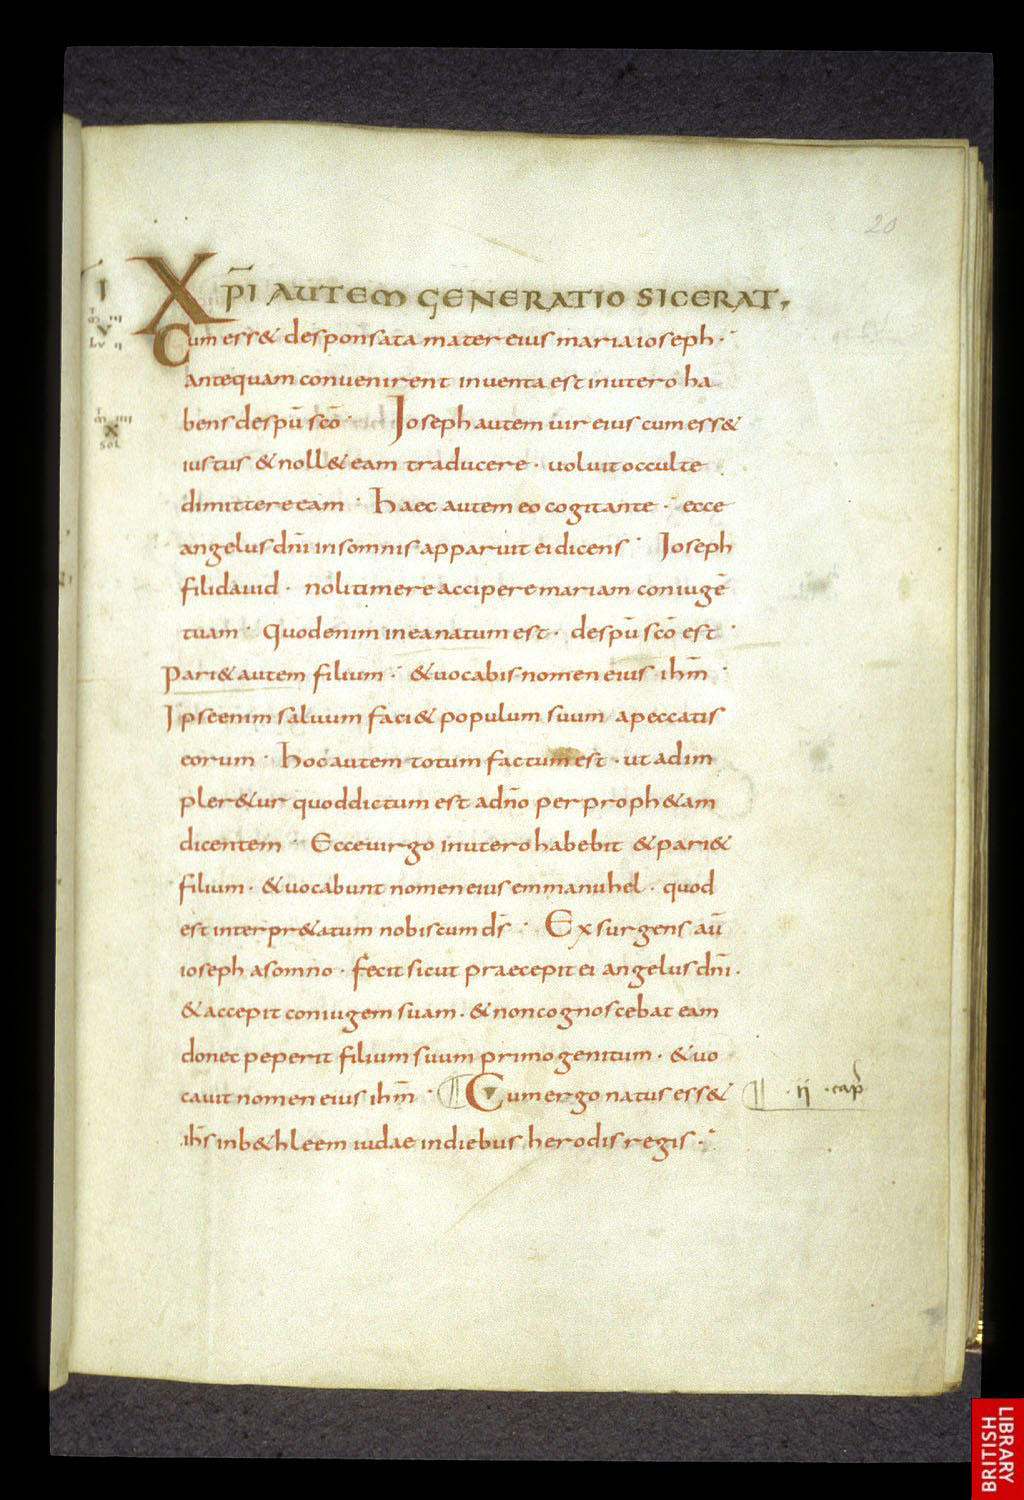 20
XP̄I AUTEM GENERATIO SIC ERAT.
I
Cum ess& desponsata mater eius maria ioseph·
antequam convenirent inventa est in utero ha
bens de sp̄u sc̄o· Joseph autem vir eius cum ess&
iustus & noll& eam traducere· voluit occulte
dimittere eam· Haec autem eo cogitante· ecce
angelus dn̄i in somnis apparuit ei dicens· Joseph
fili david· noli timere accipere mariam coniugē
tuam· Quod enim in ea natum est· de sp̄u sc̄o est·
Pari& autem filium· & vocabis nomen eius ihm̄·
Ipse enim salvum faci& populum suum a peccatis
eorum· Hoc autem totum factum est· ut adim
pler&ur quod dictum est a dn̄o per proph&am
dicentem· Ecce virgo in utero habebit & pari&
filium· & vocabunt nomen eius emmanuhel· quod
est interpr&atum nobiscum ds̄· Exsurgens aū
ioseph a somno· fecit sicut praecepit ei angelus dn̄i·
& accepit coniugem suam· & non cognoscebat eam
donec peperit filium suum primogenitum· & vo
cavit nomen eius ihm̄· ¶ Cum ergo natus ess& ¶ ·ij· cap̄
ihs̄ in b&hleem iudae in diebus herodis regis·
LIBRARY
BRITISH